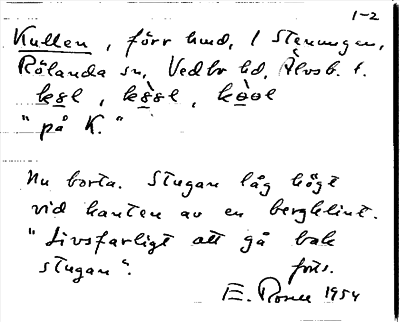 1-2
Kullen, förr lund, / Stenungen,
Rölanda sn, Vedbo hd, Älvsb. l.
"på K."
Nu borta. Stugan låg högt
vid kanten av en bergklint.
"Livsfarligt att gå bak
stugan".
forts.
E. 1954